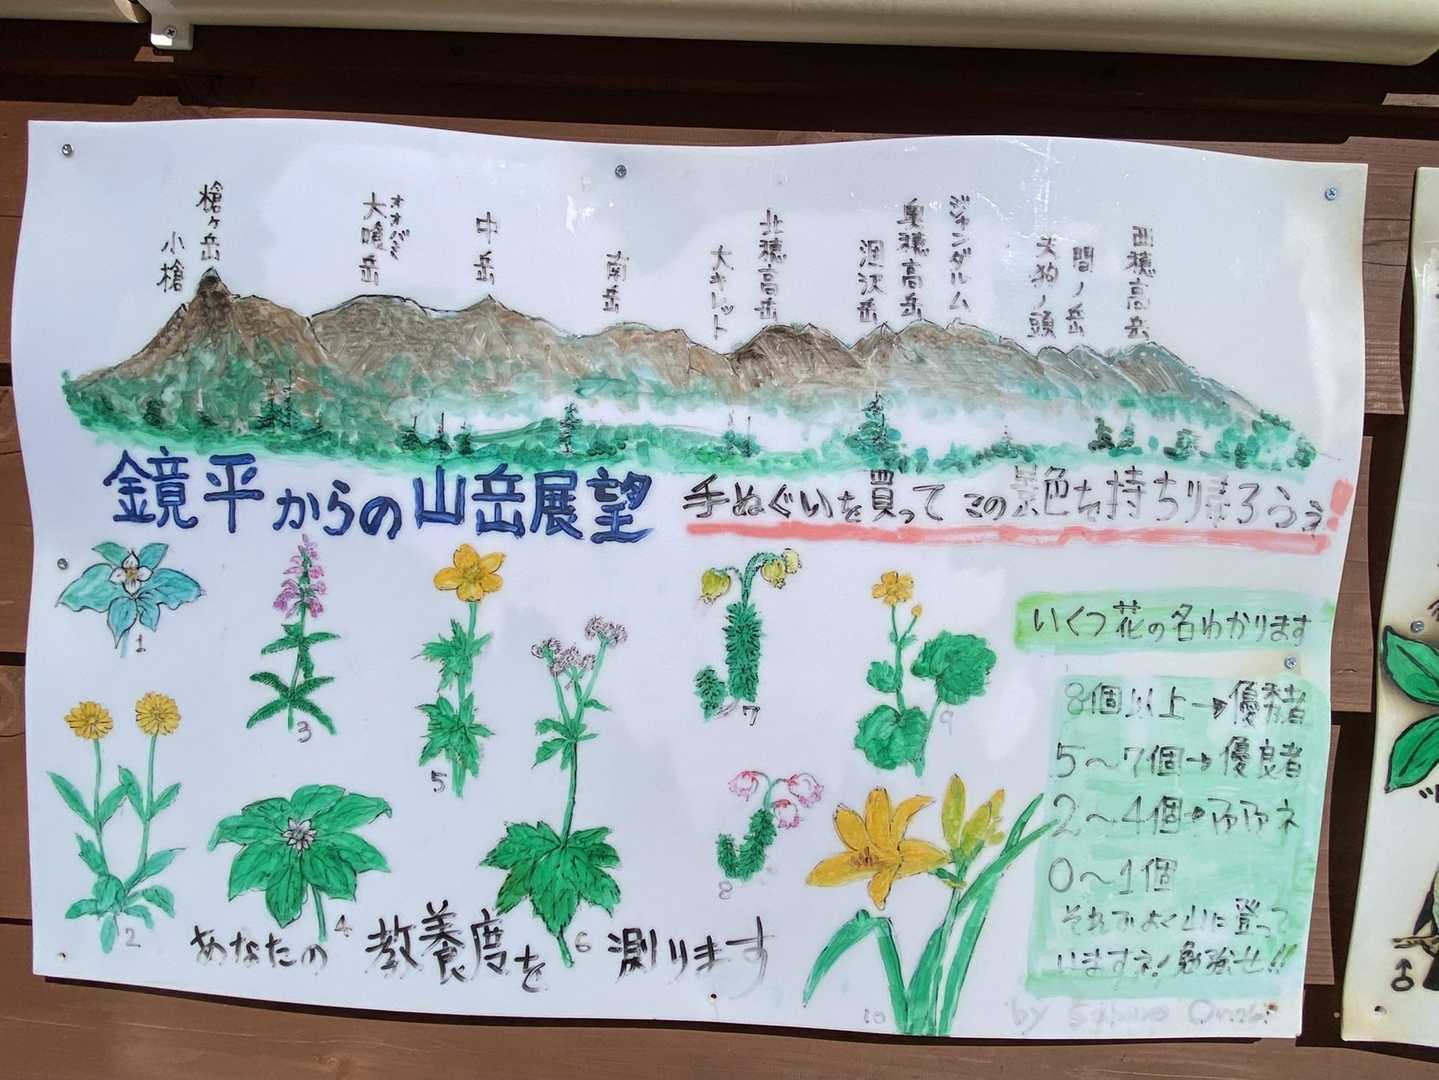 小槍
槍ヶ岳
大喰岳
オオバミ
中岳
南岳
大キレット
北穂高岳
涸沢岳
奥穂高岳
ジャンダルム
天狗ノ頭
間ノ岳
西穂高岳
鏡平からの山岳展望
手ぬぐいを買ってこの景色を持ち帰ろうぅ!
1
3
5
7
9
2
4
6
8
10
いくつ花の名わかります
8個以上→優秀者
5〜7個→優良者
2〜4個→
0〜1個
それでよく山に登って
いますネ!勉強せ!!
あなたの教養度を測ります
by
♂